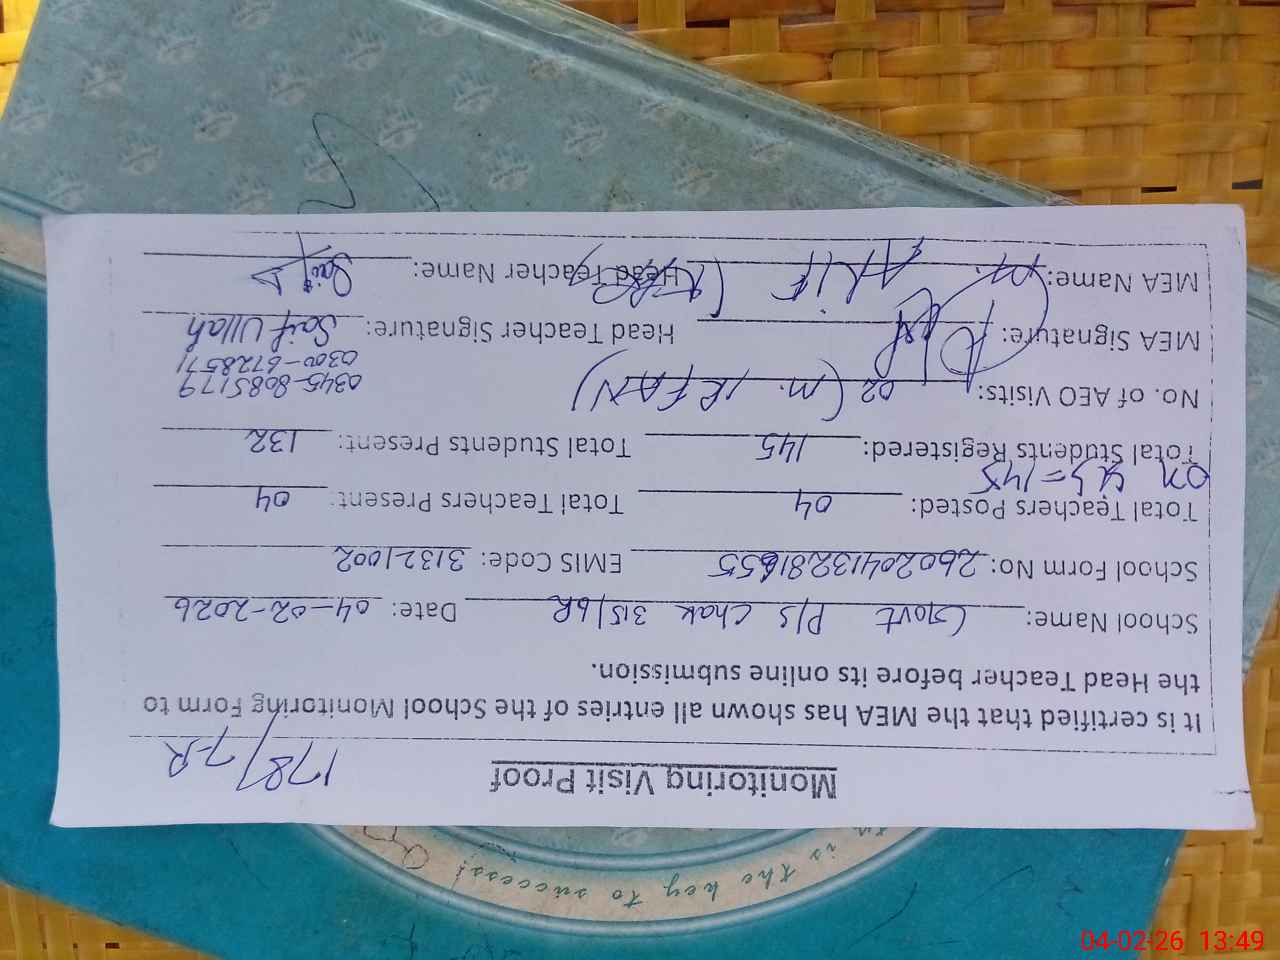 Monitoring Visit Proof
178/7-R
It is certified that the MEA has shown all entries of the School Monitoring Form to
the Head Teacher before its online submission.
School Name: Govt P/S Chak 315/6R Date: 04-02-2026
School Form No: EMIS Code: 31321002
Total Teachers Posted: 04 Total Teachers Present: 04
on = 145
Total Students Registered: 145 Total Students Present: 132
No. of AEO Visits: 02 (M. IRFAN) 0345-8085179
0300-6728571
MEA Signature: Head Teacher Signature: Saif Ullah
MEA Name: M. ALIF Head Teacher Name: Saif
is the key to success!
04-02-26 13:49